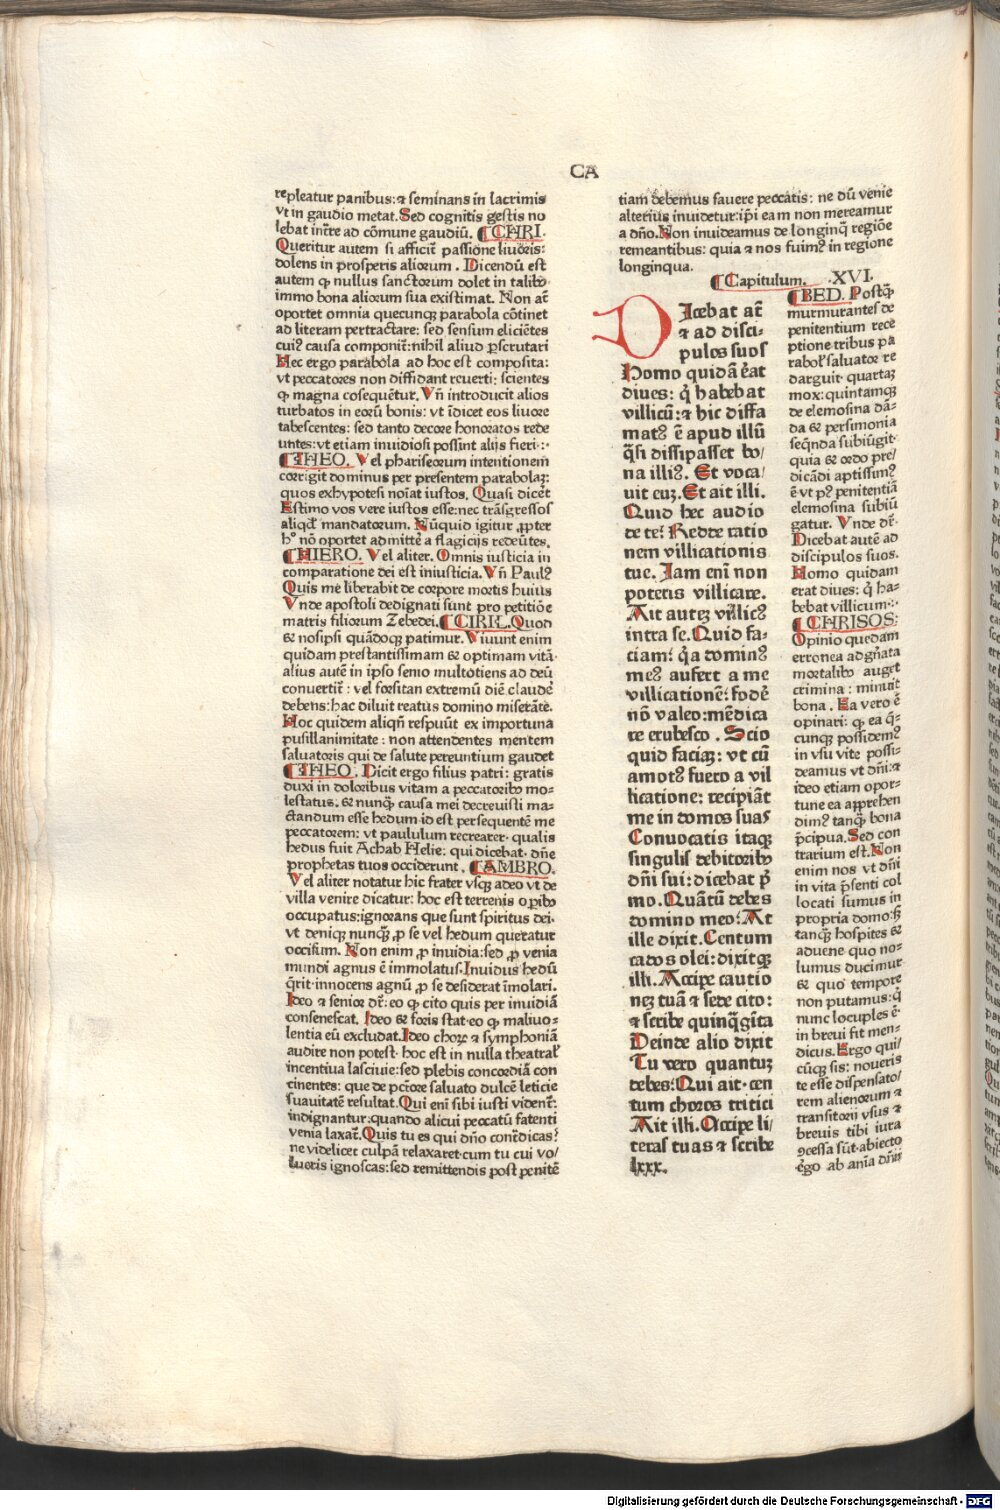 CA
repleatur panibus: ⁊ seminans in lacrimis
vt in gaudio metat. Sed cognitis gestis no
lebat int̄re ad cōmune gaudiū. ¶ CHRI.
Queritur autem si afficit̄ passione liuoris:
dolens in prosperis aliorum. Dicendū est
autem ꝙ nullus sanctorum dolet in talibꝰ
immo bona aliorum sua existimat. Non at̄
oportet omnia quecunqꝫ parabola cōtinet
ad literam pertractare: sed sensum eliciētes
cuiꝰ causa componit̄: nihil aliud ꝑscrutari
Hec ergo parabola ad hoc est composita:
vt peccatores non diffidant reuerti: scientes
ꝙ magna cosequētur. Vn̄ introducit alios
turbatos in eorū bonis: vt īdicet eos liuore
tabescentes: sed tanto decore honoratos rede
untes: vt etiam inuidiosi possint alijs fieri.
¶ THEO. Vel phariseorum intentionem
corrigit dominus per presentem parabolaꝫ:
quos exhypotesi noīat iustos. Quasi dicēt
Estimo vos vere iustos esse: nec trāsgressos
aliqd̄ mandatorum. Nūquid igitur ꝓpter
hᵒ nō oportet admittē a flagicijs redeūtes.
¶ HIERO. Vel aliter. Omnis iusticia in
comparatione dei est iniusticia. Vn̄ Paulꝰ
Quis me liberabit de corpore mortis huius
Vnde apostoli dedignati sunt pro petitiōe
matris filiorum Zebedei. ¶ CIRIL. Quod
& nosipsi quādoqꝫ patimur. Viuunt enim
quidam prestantissimam & optimam vitā
alius autē in ipso senio multotiens ad deū
conuertit̄: vel forsitan extremū diē claudē
debens: hac diluit reatus domino miserāte.
Hoc quidem aliqn̄ respuūt ex importuna
pusillanimitate: non attendentes mentem
saluatoris qui de salute pereuntium gaudet
¶ THEO. Dicit ergo filius patri: gratis
duxi in doloribus vitam a peccatoribꝰ mo-
lestatus. & nunqꝫ causa mei decreuisti ma-
ctandum esse hedum id est persequentē me
peccatorem: vt paululum recrearer. qualis
hedus fuit Achab Helie: qui dicebat. dn̄e
prophetas tuos occiderunt. ¶ AMBRO.
Vel aliter notatur hic frater vsqꝫ adeo vt de
villa venire dicatur: hoc est terrenis opibꝰ
occupatus: ignorans que sunt spiritus dei.
vt deniqꝫ nunqꝫ ꝓ se vel hedum queratur
occisum. Non enim ꝓ inuidia: sed ꝓ venia
mundi agnus ē immolatus. Inuidus hedū
q̄rit. innocens agnū ꝓ se desiderat īmolari.
Ideo ⁊ senior dr̄: eo ꝙ cito quis per inuidiā
consenescat. Ideo & foris stat. eo ꝙ maliuo-
lentia eū excludat. Ideo choꝝ ⁊ symphoniā
audire non potest. hoc est in nulla theatral'
incentiua lasciuie: sed plebis concordiā con
cinentes: que de pctōre saluato dulcē leticie
suauitatē resultat. Qui eni sibi iusti vident̄:
indignantur: quando alicui peccatū fatenti
venia laxat̄. Quis tu es qui dn̄o contr̄dicas?
ne videlicet culpā relaxaret. cum tu cui vo/
lueris ignoscas: sed remittendis post penitē
tiam debemus fauere peccatis: ne dū venie
alterius inuidetur: ip̄i eam non mereamur
a dn̄o. Non inuideamus de longinq̄ regiōe
remeantibus: quia ⁊ nos fuimꝰ in regione
longinqua.
¶ Capitulum. .XVI.
DIcebat at̄
⁊ ad disci-
pulos suos
Homo quidā ērat
diues: q̄ habebat
villicū: ⁊ hic diffa
matꝰ ē apud illū
q̄si dissipasset bo/
na illiꝰ. Et voca/
uit euꝫ. Et ait illi.
Quid hec audio
de te? Redde ratio
nem villicationis
tue. Jam eni non
poteris villicare.
Ait auteꝫ villicꝰ
intra se. Quid fa-
ciam? q̄a dominꝰ
meꝰ aufert a me
villicationē: fodē
nō valeo: mēdica
re erubesco. Scio
quid faciaꝫ: vt cū
amotꝰ fuero a vil
licatione: recipiāt
me in domos suas
Conuocatis itaqꝫ
singulis debitoribꝰ
dn̄i sui: dicebat p̄
mo. Quātū debes
domino meo? At
ille dixit. Centum
cados olei: dixitqꝫ
illi. Accipe cautio
neꝫ tuā ⁊ sede cito:
⁊ scribe quinq̄gīta
Deinde alio dixit
Tu vero quantuꝫ
debes? Qui ait. cen
tum choros tritici
Ait illi. Accipe li/
teras tuas ⁊ scribe
lxxx.
¶ BED. Postqꝫ
murmurantes de
penitentium rece
ptione tribus pa
rabol' saluator re
darguit. quartaꝫ
mox: quintamqꝫ
de elemosina dā-
da & persimonia
seqn̄da subiūgit.
quia & ordo pre/
dicādi aptissimꝰ
ē vt pꝰ penitentiā
elemosina subiū
gatur. Vnde dr̄.
Dicebat autē ad
discipulos suos.
Homo quidam
erat diues: q̄ ha-
bebat villicum.
¶ CHRISOS:
Opinio quedam
erronea adgn̄ata
mortalibꝰ auget
crimina: minuit
bona. Ea vero ē
opinari: ꝙ ea q̄-
cunqꝫ possidemꝰ
in vsu vite possi-
deamus vt dn̄i: ⁊
ideo etiam opor-
tune ea apprehen
dimꝰ tanqꝫ bona
p̄cipua. Sed con
trarium est. Non
enim nos vt dn̄i
in vita p̄senti col
locati sumus in
propria domo: sꝫ
tanqꝫ hospites &
aduene quo no-
lumus ducimur
& quo tempore
non putamus: q̄
nunc locuples ē.
in breui fit men-
dicus. Ergo qui/
cūqꝫ sis: noueris
te esse dispensato/
rem alienorum ⁊
transitorii vsus ⁊
breuis tibi iura
ꝯcessa sūt. abiecto
ērgo ab anīa dn̄ii
Digitalisierung gefördert durch die Deutsche Forschungsgemeinschaft - DFG